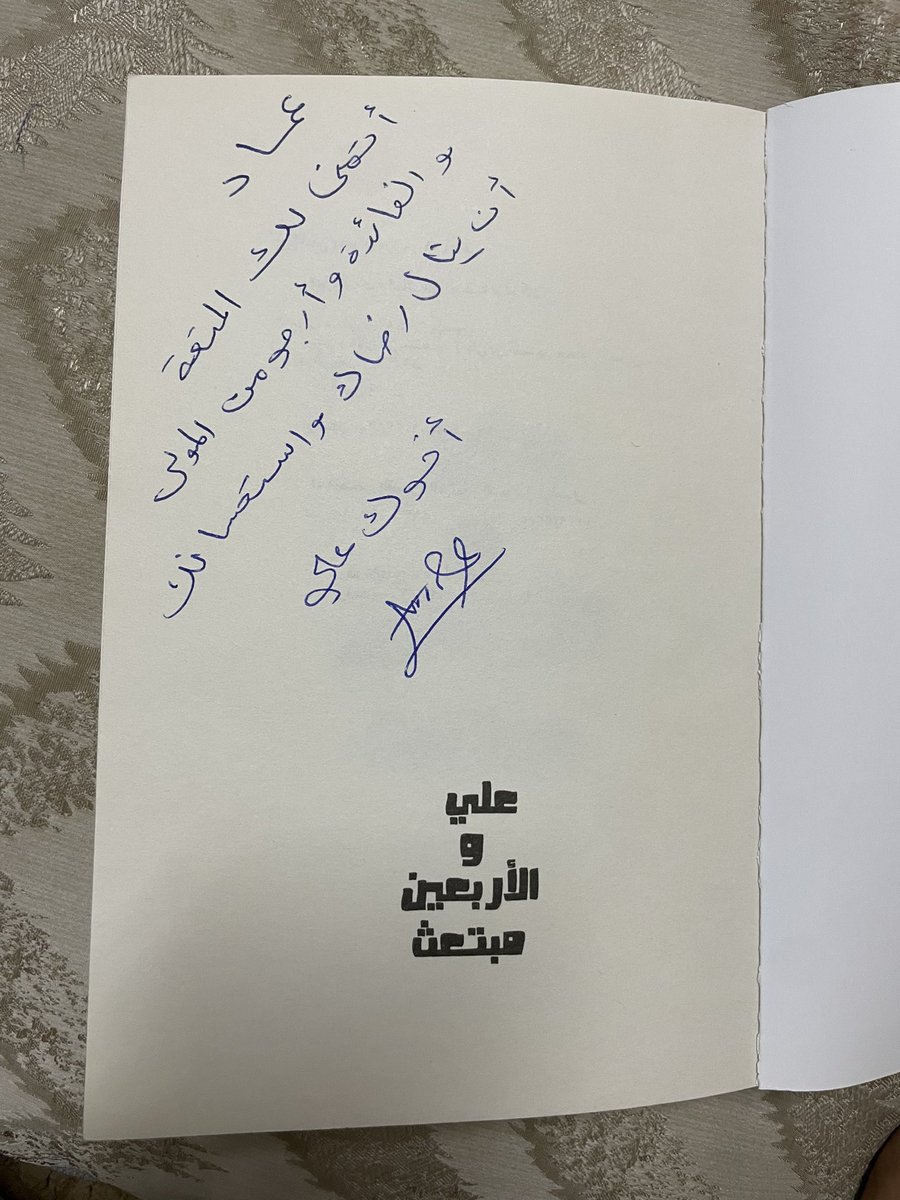 عماد
أتمنى لك المتعة
والفائدة وأرجو من المولى
أن ينال رضاك واستحسانك
أخوك علي
علي
و
الأربعين
مبتعث